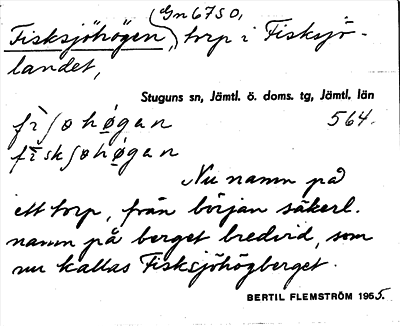 (Gn 6750,
Fisksjöhögen,) torp i Fisksjö-
landet,
Stuguns sn, Jämtl. ö. doms. tg, Jämtl. län
564.
fìʃøhøgan
fĭskʃøhøgan
Nu namn på
ett torp, från början säkerl.
namn på berget bredvid, som
nu kallas Fisksjöhögberget.
BERTIL FLEMSTRÖM 1955.